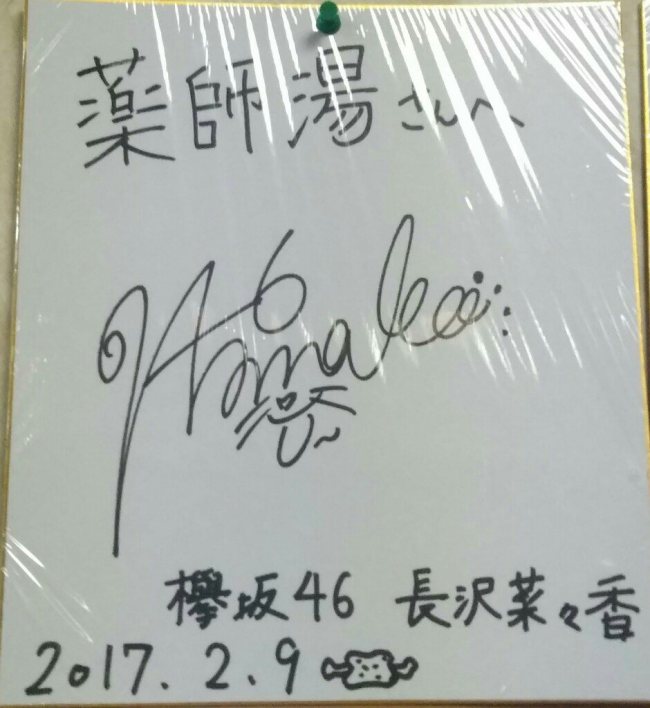 薬師湯さんへ
欅坂46 長沢菜々香
2017.2.9